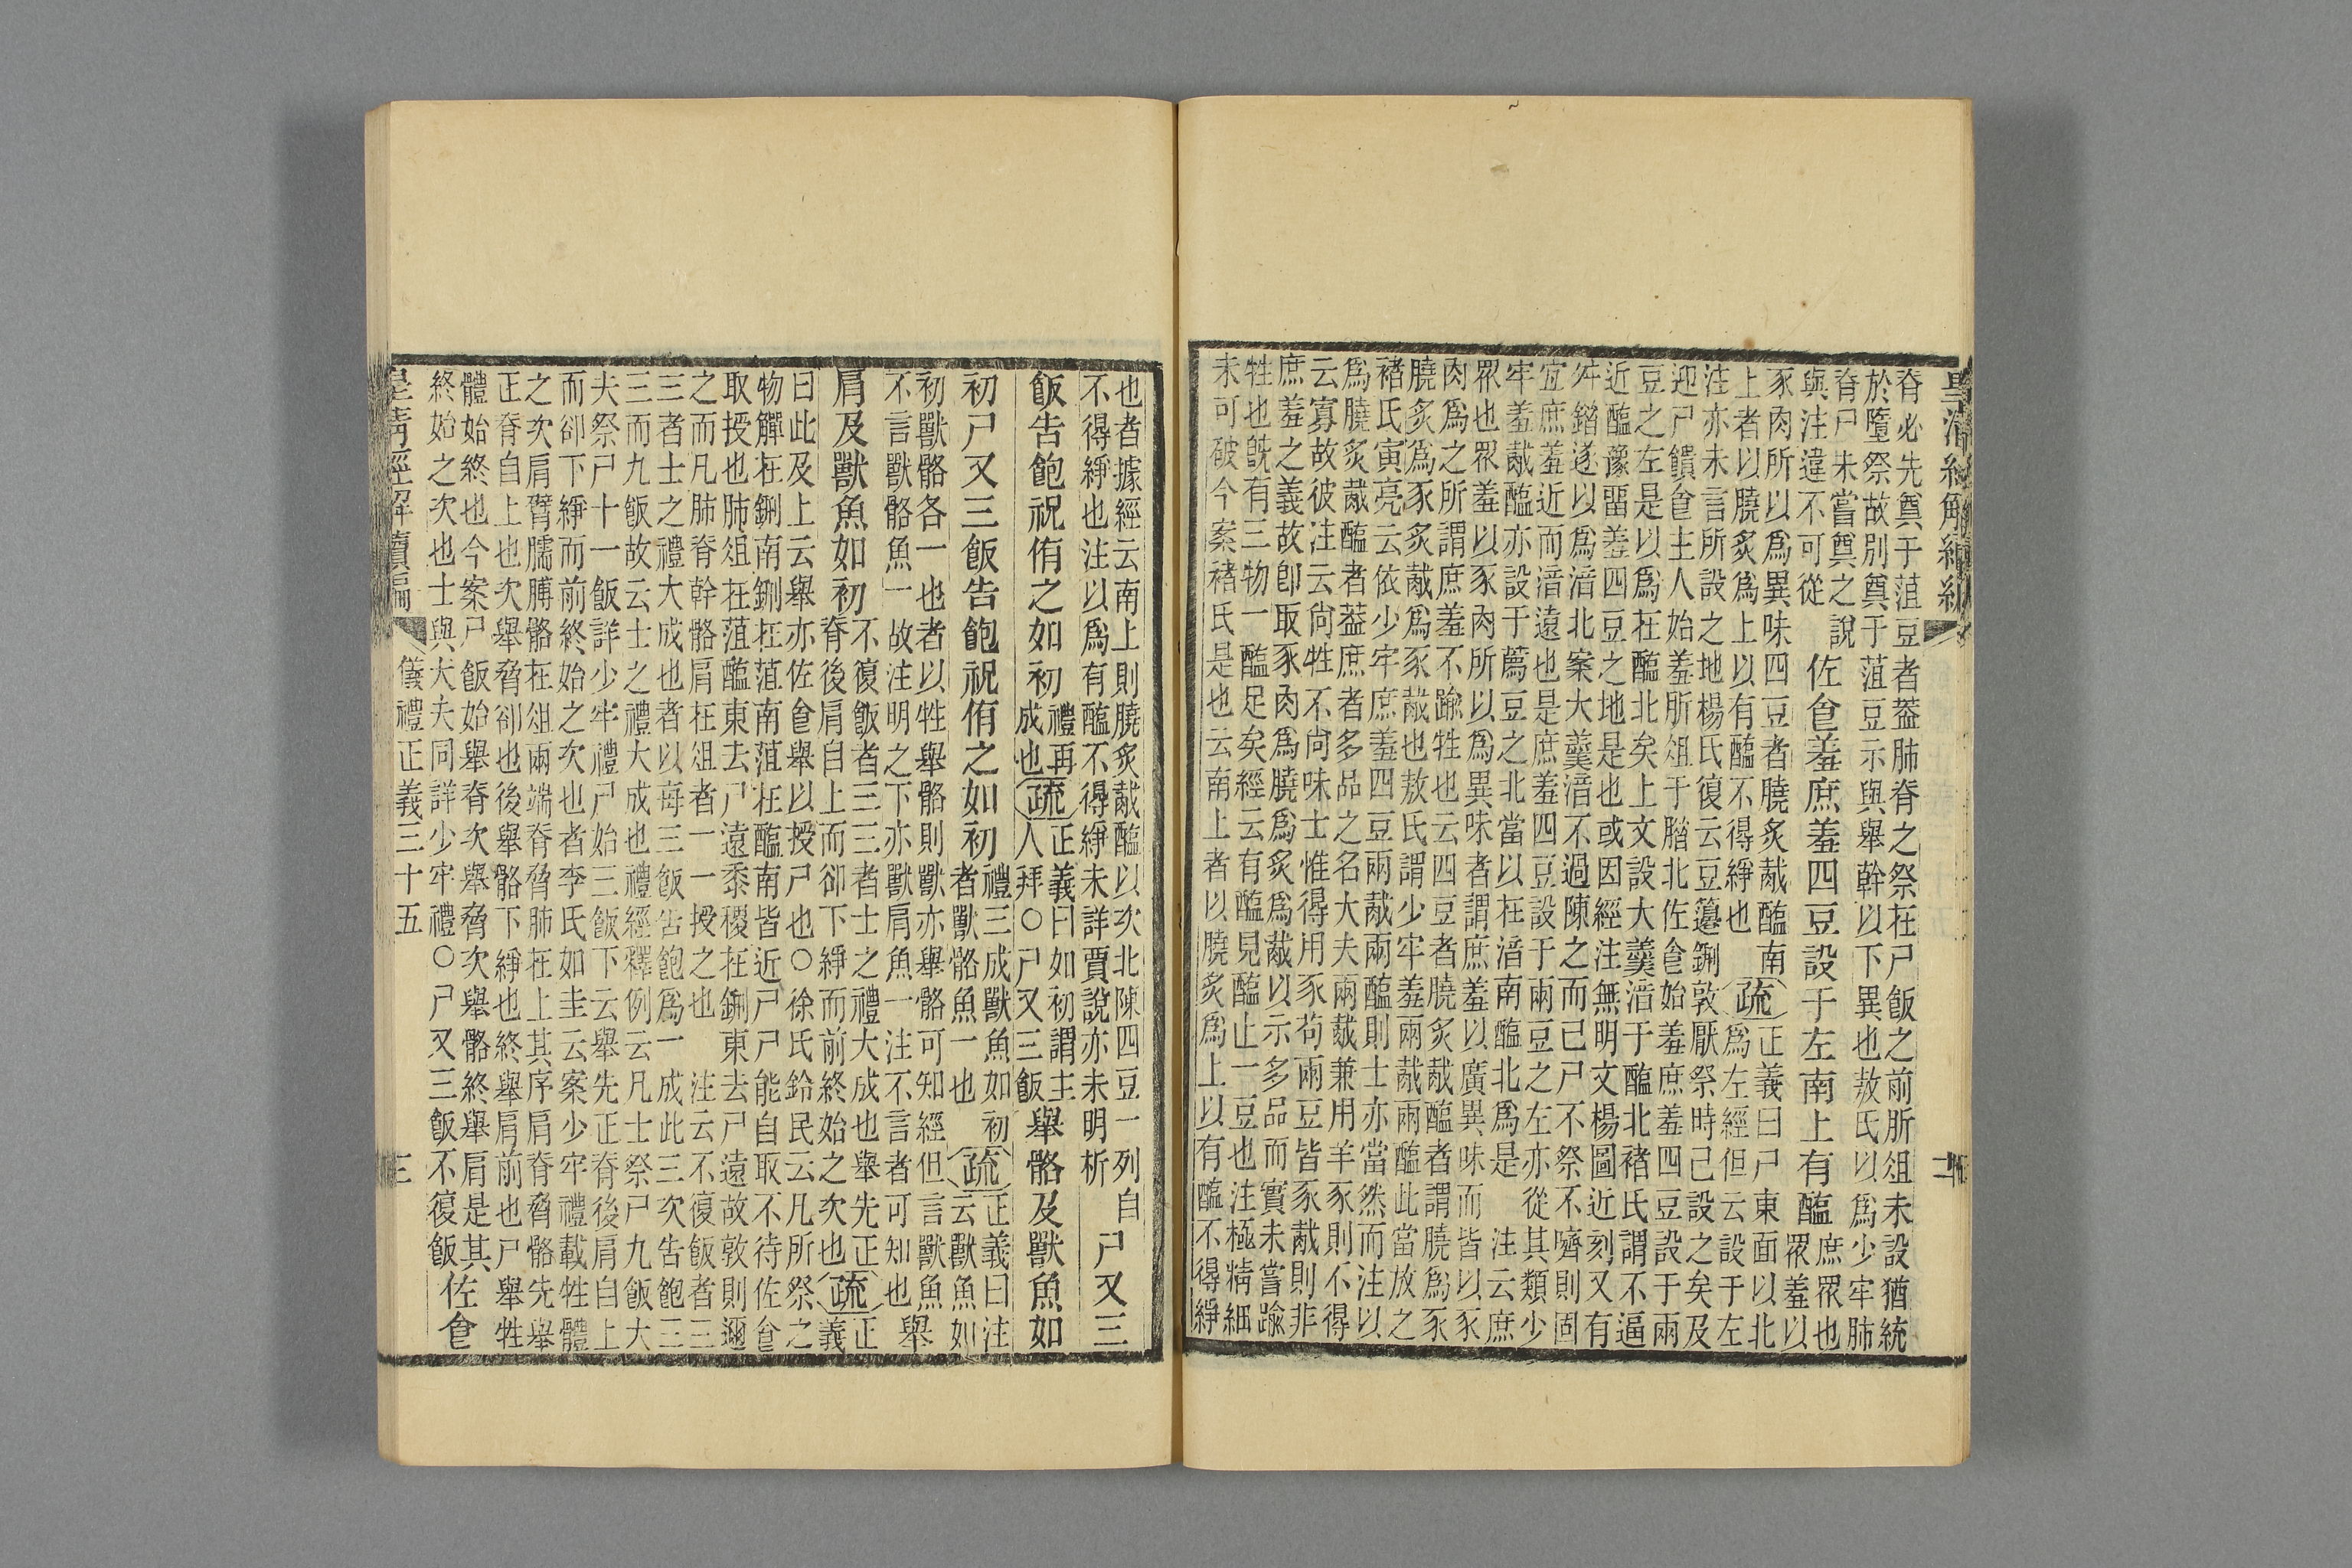 皇清經解續編
二
脊必先奠于菹豆者葢肺脊之祭在尸飯之前肵俎未設猶統
於墮祭故別奠于菹豆示與舉幹以下異也敖氏以爲少牢肺
脊尸未嘗奠之說
與注違不可從
佐食羞庶羞四豆設于左南上有醢
庶眾也
眾羞以
豕肉所以爲異味四豆者膮炙胾醢南
上者以膮炙爲上以有醢不得綪也
疏
正義曰尸東面以北
爲左經但云設于左
注亦未言所設之地楊氏復云豆籩鉶敦厭祭時已設之矣及
迎尸饋食主人始羞肵俎于腊北佐食始羞庶羞四豆設于兩
豆之左是以爲在醢北矣上文設大羹湆于醢北褚氏謂不逼
近醢豫畱羞四豆之地是也或因經注無明文楊圖近刻又有
舛錯遂以爲湆北案大羹湆不過陳之而已尸不祭不嚌則固
宜庶羞近而湆遠也是庶羞四豆設于兩豆之左亦從其類少
牢羞胾醢亦設于薦豆之北當以在湆南醢北爲是
注云庶
眾也眾羞以豕肉所以爲異味者謂庶羞以廣異味而皆以豕
肉爲之所謂庶羞不踰牲也云四豆者膮炙胾醢者謂膮爲豕
膮炙爲豕炙胾爲豕胾也敖氏謂少牢羞兩胾兩醢此當放之
褚氏寅亮云依少牢庶羞四豆兩胾兩醢則士亦當然而注以
爲膮炙胾醢者葢庶者多品之名大夫兩胾兼用羊豕則不得
云寡故彼注云尚牲不尚味士惟得用豕茍兩豆皆豕胾則非
庶羞之義故卽取豕肉爲膮爲炙爲胾以示多品而實未嘗踰
牲也旣有三物一醢足矣經云有醢見醢止一豆也注極精細
未可破今案褚氏是也云南上者以膮炙爲上以有醢不得綪
也者據經云南上則膮炙胾醢以次北陳四豆一列自
不得綪也注以爲有醢不得綪未詳賈說亦未明析
尸又三
飯告飽祝侑之如初
禮再
成也
疏
正義曰如初謂主
人拜○尸又三飯
舉骼及獸魚如
初尸又三飯告飽祝侑之如初
禮三成獸魚如初
者獸骼魚一也
疏
正義曰注
云獸魚如
初獸骼各一也者以牲舉骼則獸亦舉骼可知經但言獸魚
不言獸骼魚一故注明之下亦獸肩魚一注不言者可知也
舉
肩及獸魚如初
不復飯者三三者士之禮大成也舉先正
脊後肩自上而卻下綪而前終始之次也
疏
正
義
曰此及上云舉亦佐食舉以授尸也○徐氏鈴民云凡所祭之
物觶在鉶南鉶在菹南菹在醢南皆近尸尸能自取不待佐食
取授也肺俎在菹醢東去尸遠黍稷在鉶東去尸遠故敦則邇
之而凡肺脊幹骼肩在俎者一一授之也
注云不復飯者三
三者士之禮大成也者以每三飯告飽爲一成此三次告飽三
三而九飯故云士之禮大成也禮經釋例云凡士祭尸九飯大
夫祭尸十一飯詳少牢禮尸始三飯下云舉先正脊後肩自上
而卻下綪而前終始之次也者李氏如圭云案少牢禮載牲體
之次肩臂臑膊骼在俎兩端脊脅肺在上其序肩脊脅骼先舉
正脊自上也次舉脅卻也後舉骼下綪也終舉肩前也尸舉牲
體始終也今案尸飯始舉脊次舉脅次舉骼終舉肩是其
終始之次也士與大夫同詳少牢禮○尸又三飯不復飯
佐食
皇清經解續編
儀禮正義三十五
三